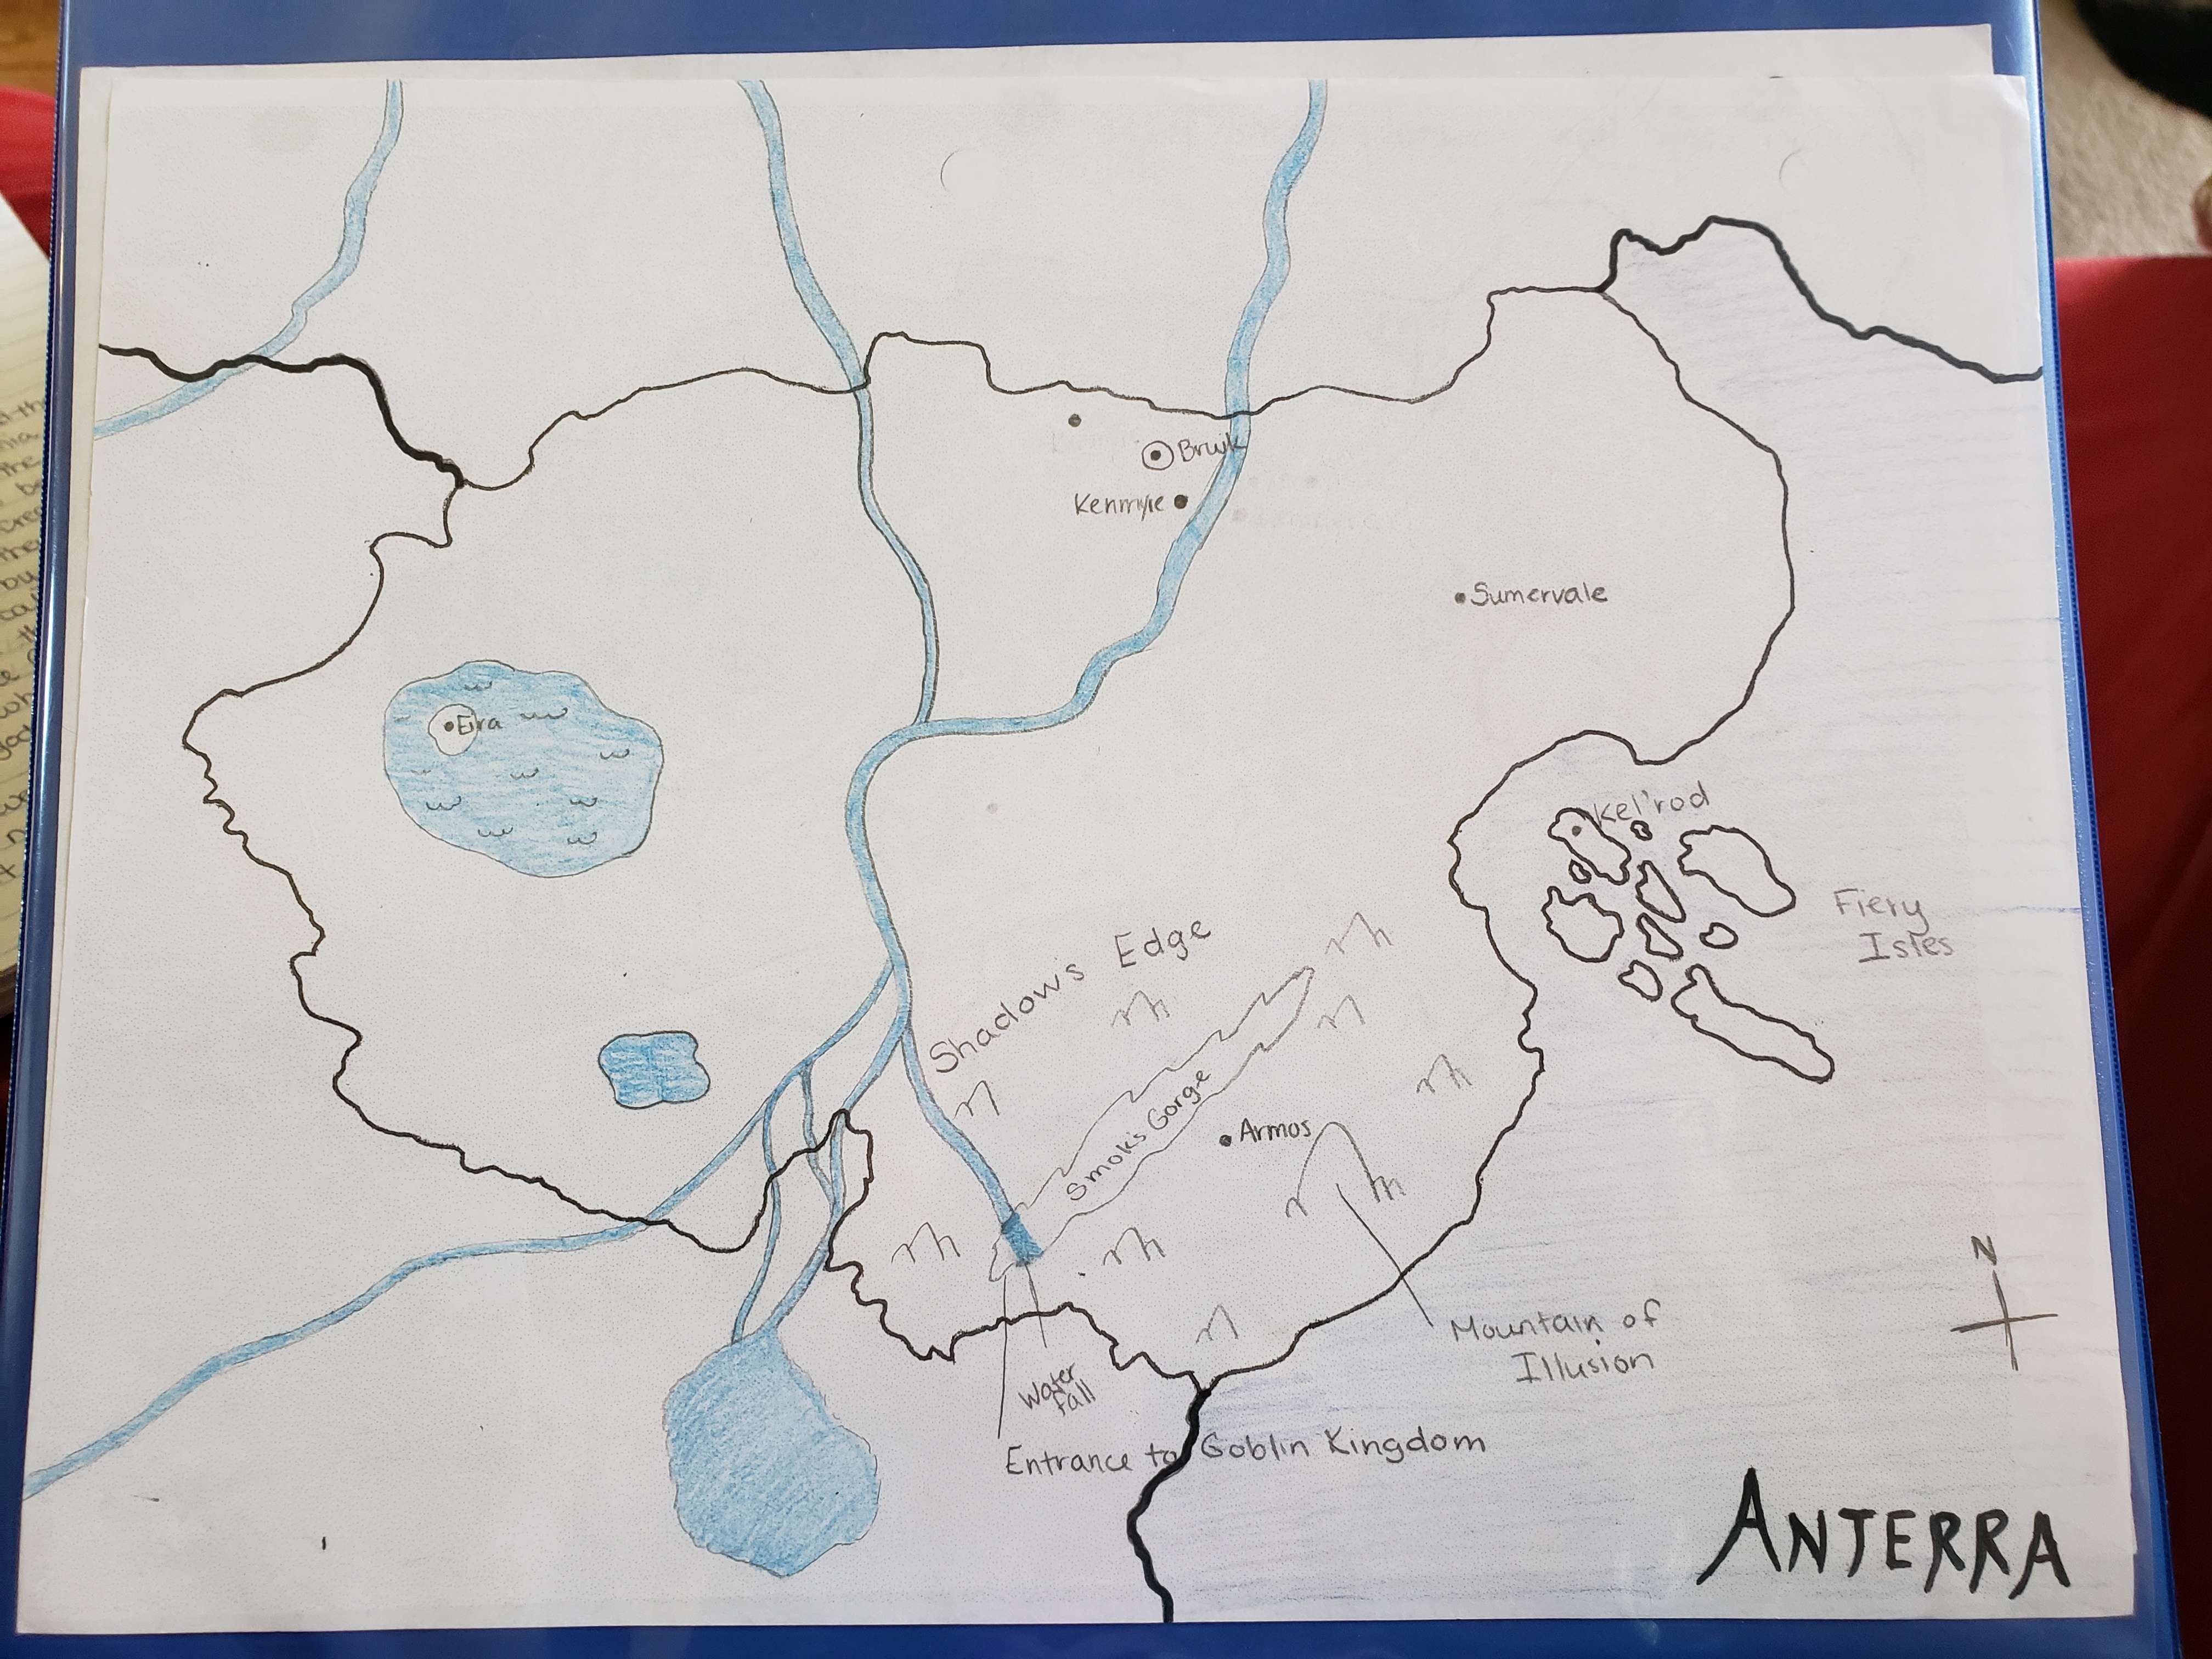 Bruik
Kenmyre
Sumervale
Eira
Kel'rod
Fiery
Isles
Shadow's Edge
Smok's Gorge
Armos
N
Mountain of
Illusion
Water
Fall
Entrance to Goblin Kingdom
ANTERRA